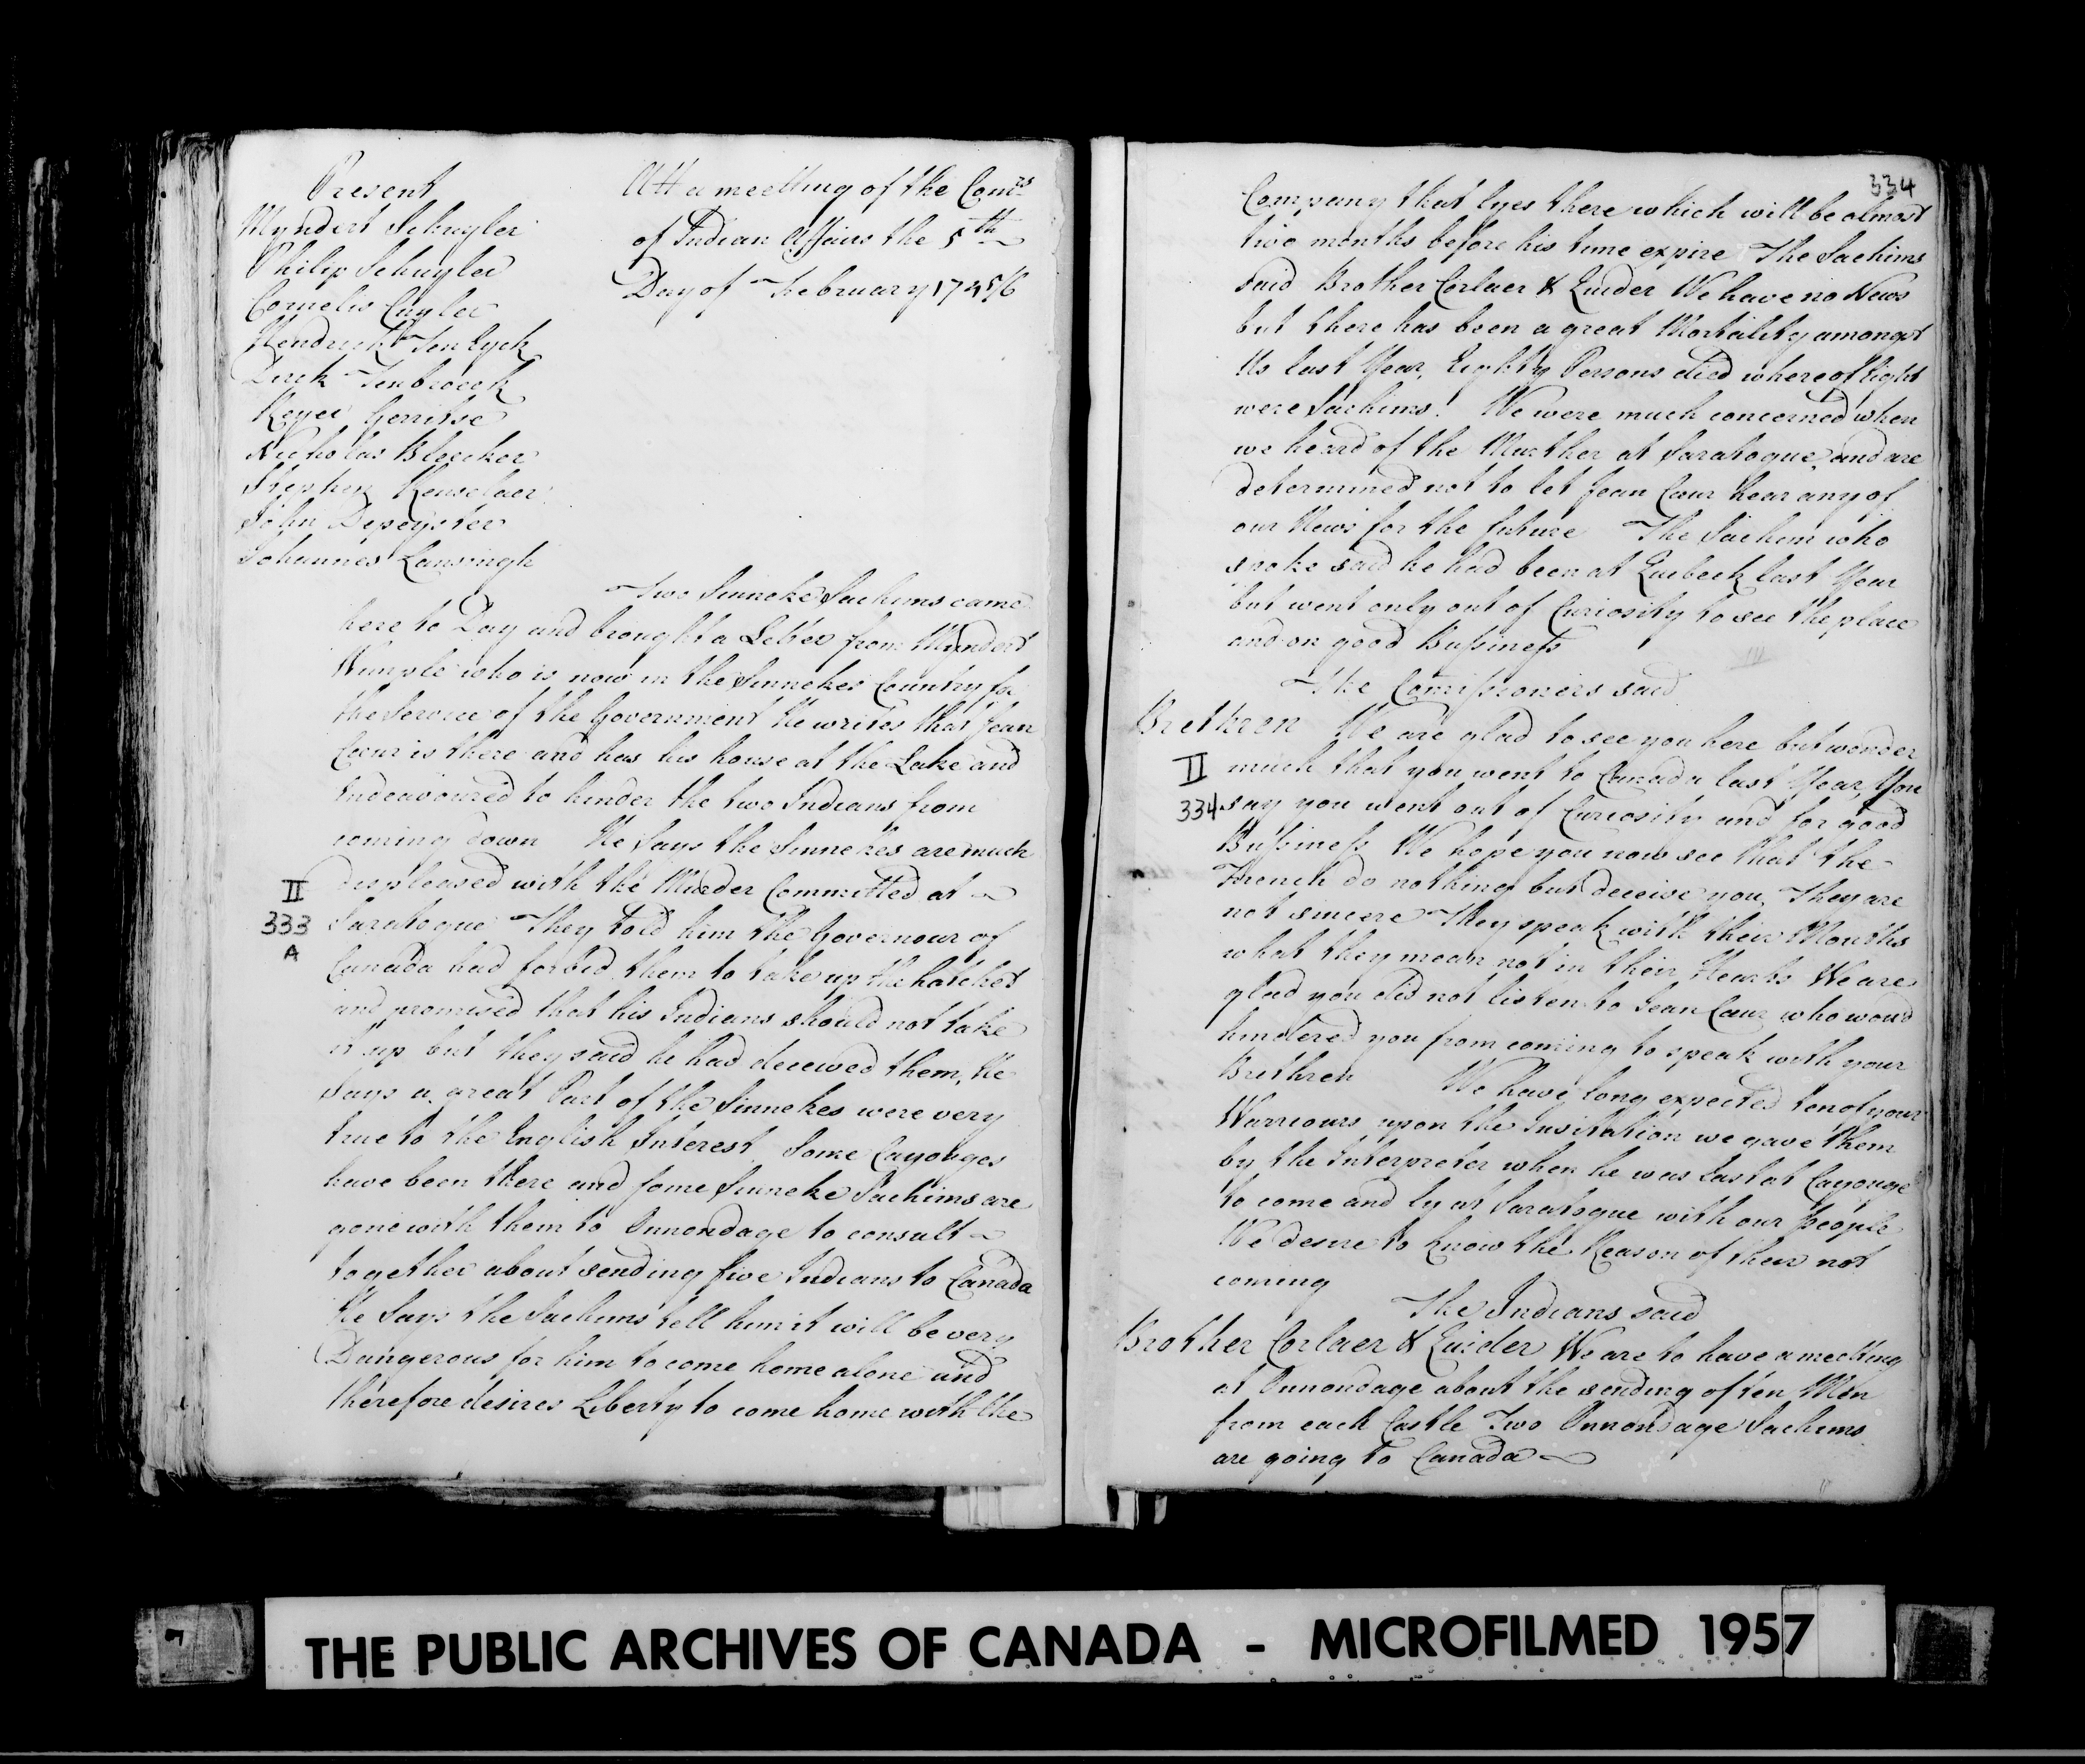 Present
Myndert Schuyler
Philip Schuyler
Cornelis Cuyler
Hendrick Ten Eyck
Dirk Tenbroeck
Reyer Gerritse
Nicholas Bleecker
Stephen Renselaer
John Depeyster
Johannes Lansingh
Att a meetting of the Comrs
of Indian Affairs the 5th
Day of February 174 5/6
Two Sinneke Sachims came
here to Day and brought a Letter from Myndert
Wemple who is now in the Sinnekes Country for
the Service of the Government He writes that Jean
Coeur is there and has his house at the Lake and
Endeavoured to hinder the two Indians from
coming down He Says the Sinnekes are much
displeased with the Murder Committed at
II
333
A
Saratogue They told him the Governour of
Canada had forbid them to take up the hatchet
and promised that his Indians should not take
it up but they said he had deceived them, He
Says a great Part of the Sinnekes were very
true to the English Interest Some Cayouges
have been there and some Sinneke Sachims are
gone with them to Onnondage to consult
together about sending five Indians to Canada
He Says the Sachims tell him it will be very
Dangerous for him to come home alone and
therefore desires Liberty to come home with the
334
Company that lyes there which will be almost
two months before his time expire The Sachims
said Brother Corlaer & Quider We have no News
but there has been a great Mortality amongst
Us last Year, Eighty Persons died whereof Eight
were Sachims! We were much concerned when
we heard of the Murther at Saratogue, and are
determined not to let Jean Coeur hear any of
our News for the future The Sachim who
spoke said he had been at Quebeck last Year
but went only out of Curiosity to see the place
and on good Bussiness
The Comissioners said
Brethren We are glad to see you here but wonder
II
334
much that you went to Canada last Year, You
say you went out of Curiosity and for good
Bussiness We hope you now see that the
French do nothing but deceive you, They are
not sincere They speak with their Mouths
what they mean not in their Hearts We are
glad you did not listen to Jean Coeur who woud
hindered you from coming to speak with your
Brethren We have long expected ten of your
Warriours upon the Invitation we gave them
by the Interpreter when he was last at Cayouge
to come and ly at Saratogue with our People
We desire to know the Reason of their not
coming
The Indians said
Brother Corlaer & Quider We are to have a meeting
at Onnondage about the sending of ten Men
from each Castle Two Onnondage Sachims
are going to Canada
THE PUBLIC ARCHIVES OF CANADA - MICROFILMED 1957